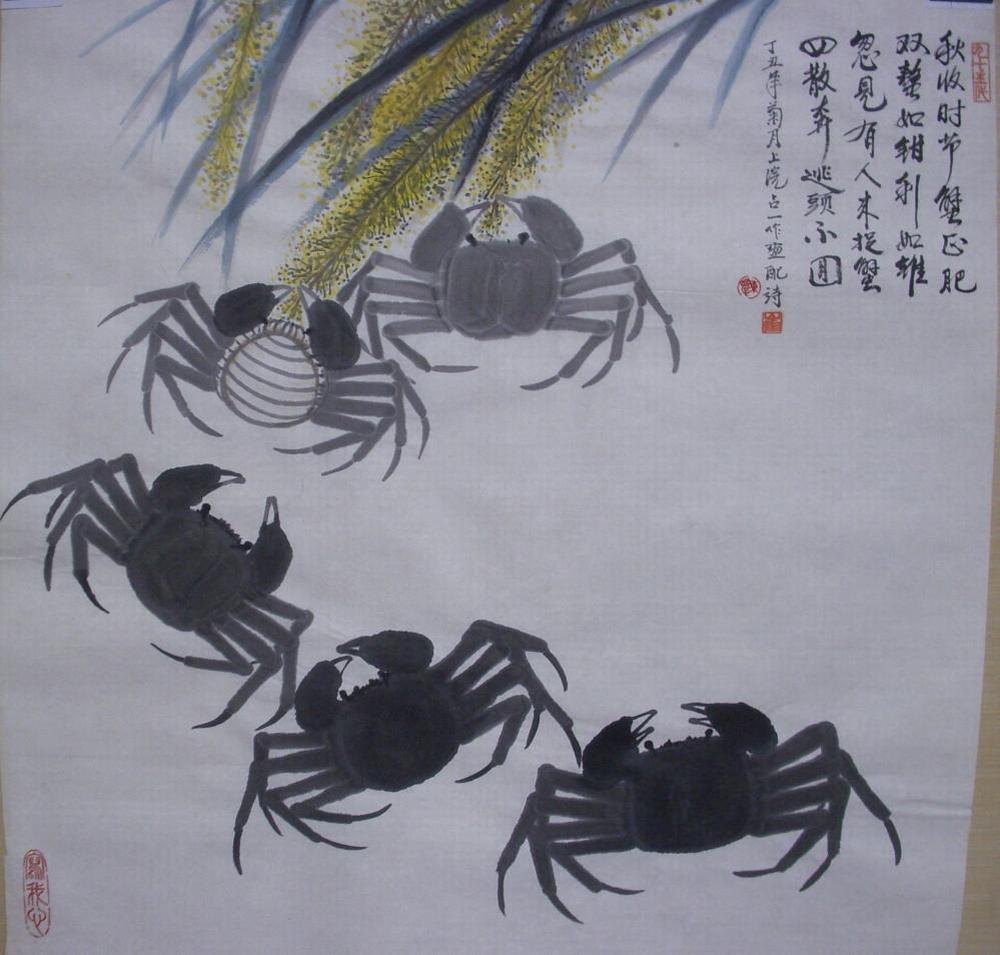 秋收时节蟹正肥
双螯如钳利如锥
忽见有人来捉蟹
四散奔逃头不回
丁丑年菊月上浣占一作画配诗
写我心